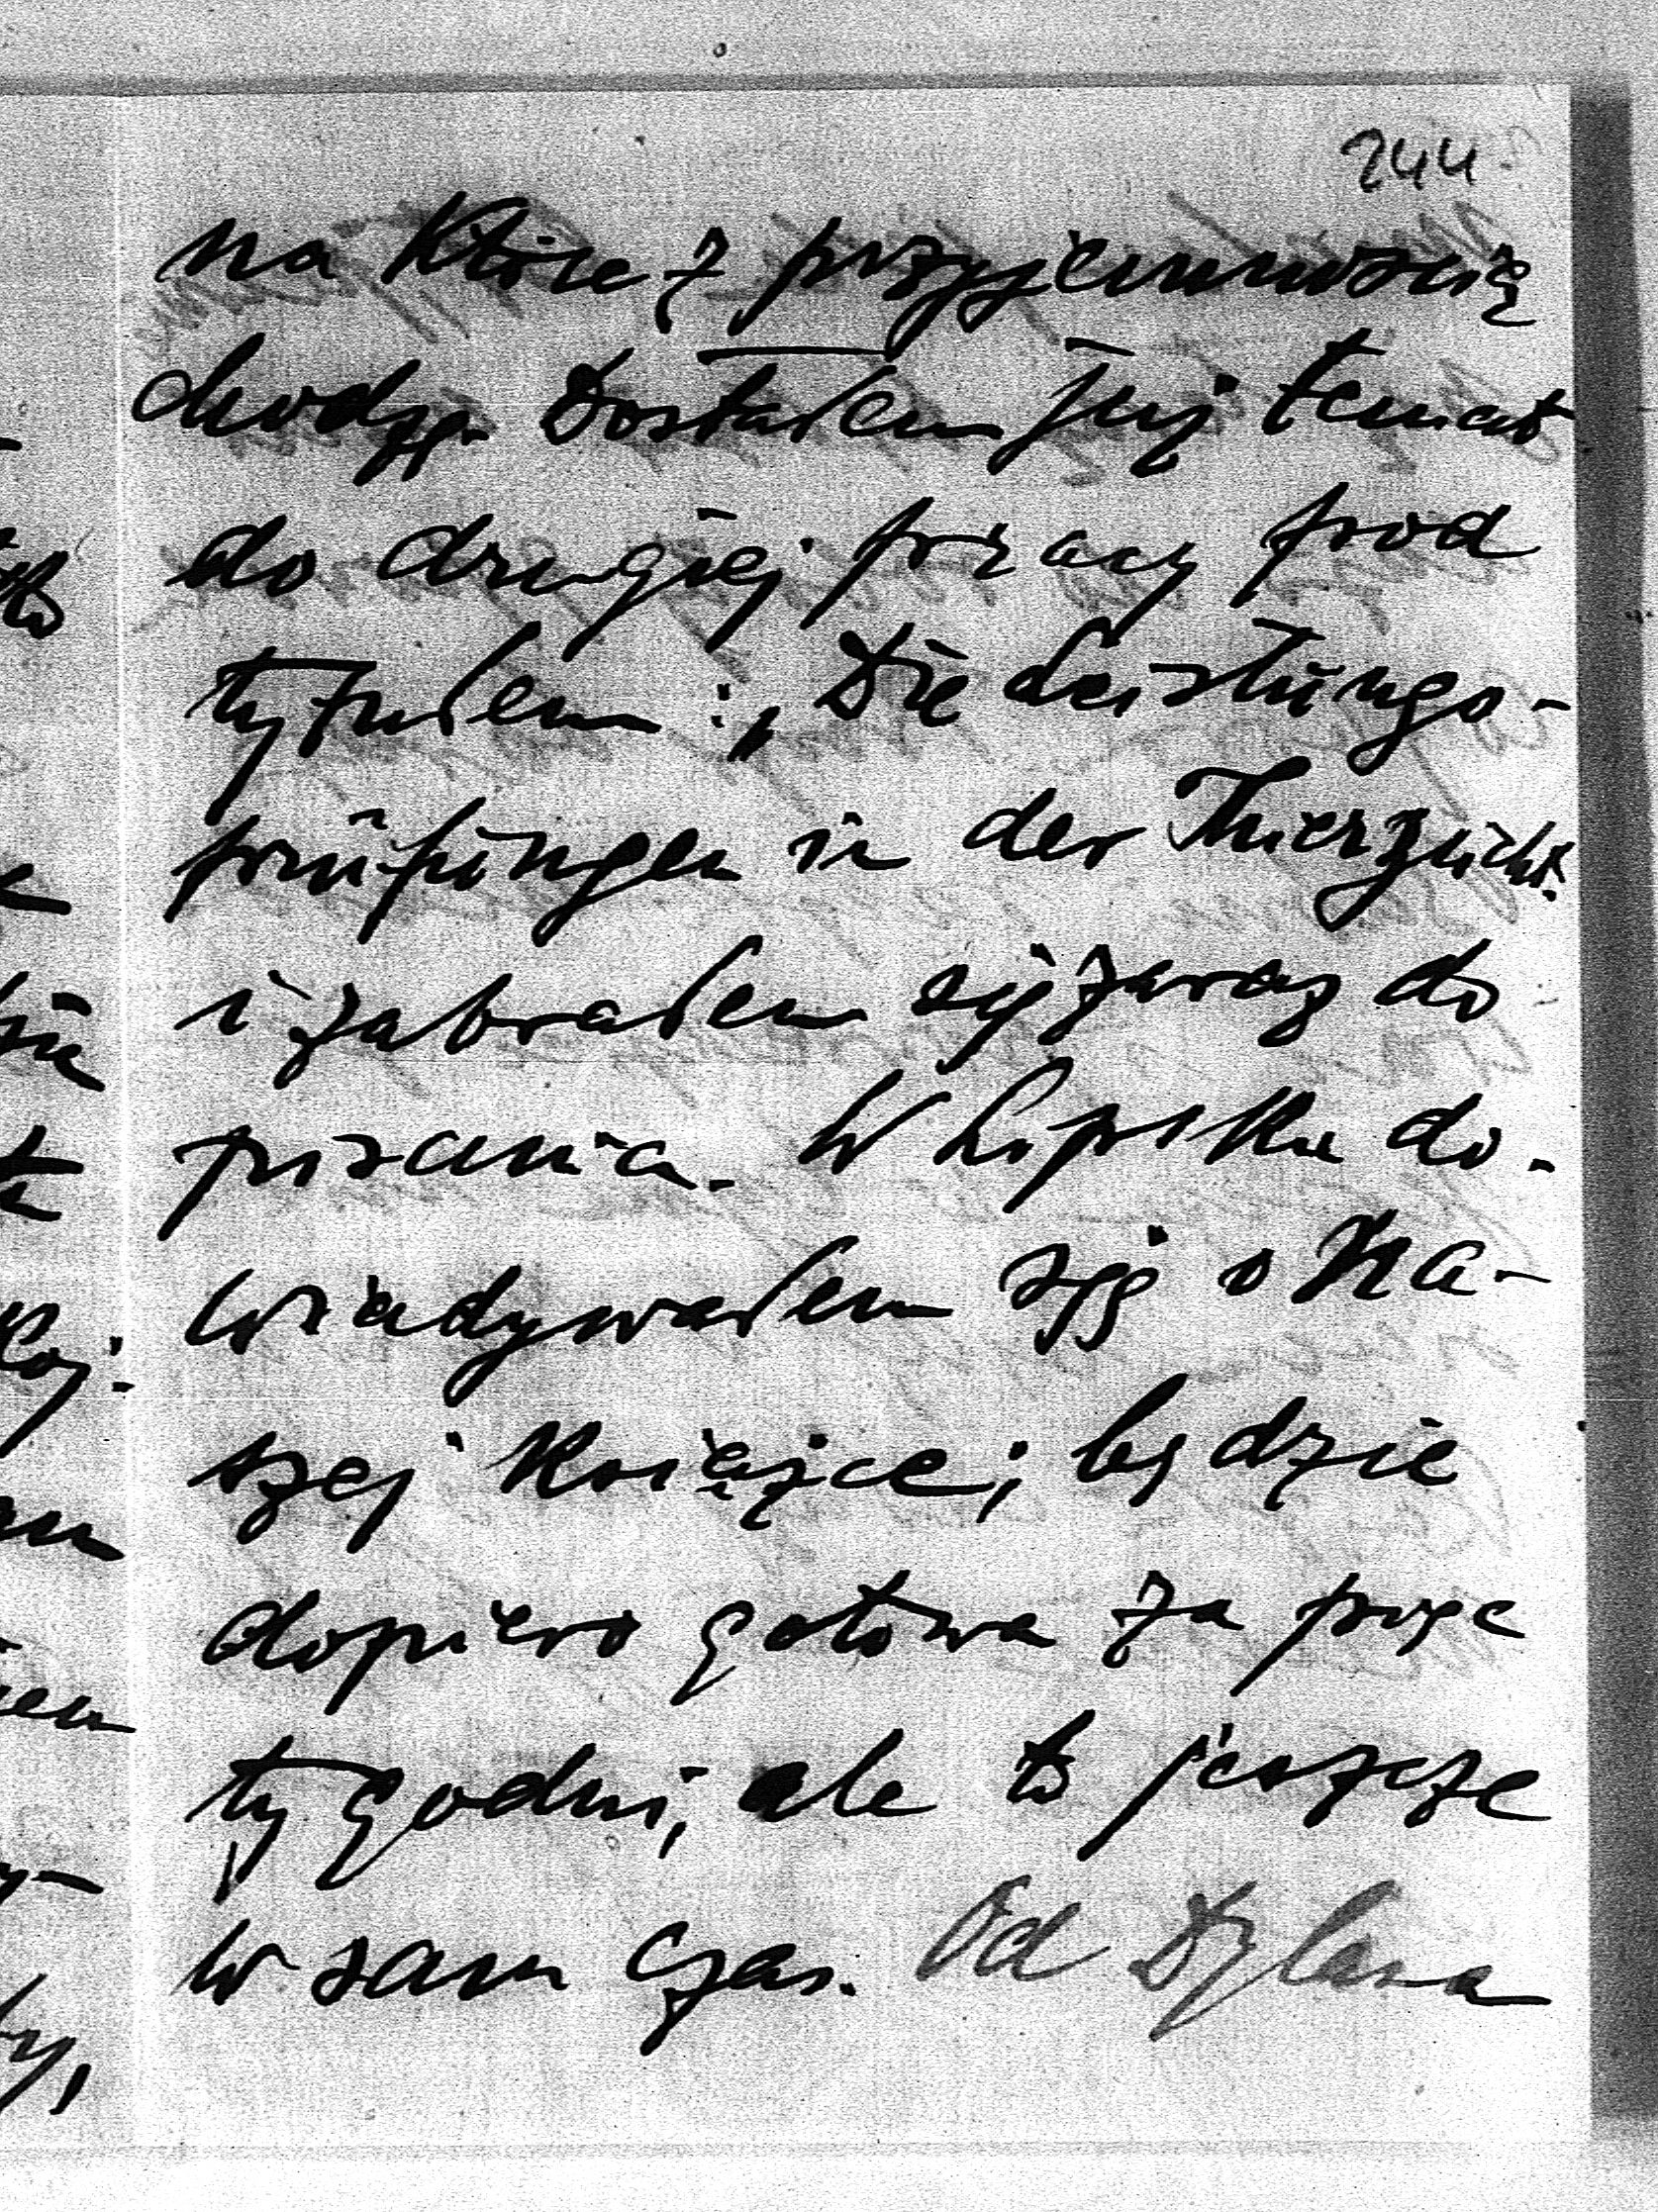 244
na które z przyjemnością
chodzę. Dostałem już temat
do drugiej pracy pod
tytułem: „Die Leistungs-
prüfungen in der Thierzucht.
i zabrałem się zaraz do
pisania. W Lipsku do-
wiadywałem się o Na-
szej książce; będzie
dopiero gotowa za parę
tygodni, ale to jeszcze
w sam czas. Od